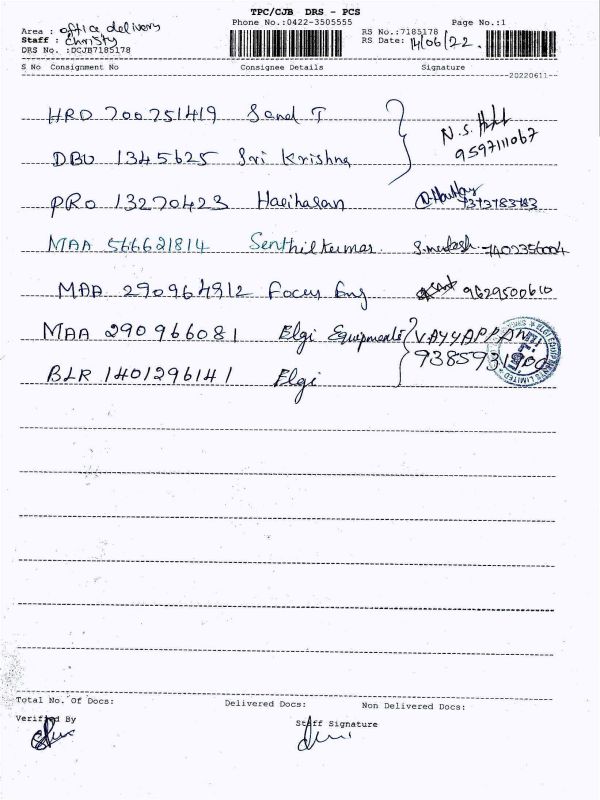 TPC/CJB DRS - PCS
Phone No.:0422-3505555 Page No.:1
Area : office delivery RS No.:7185178
Staff : christy RS Date: 14/06/22.
DRS No. :DCJB7185178
S No Consignment No Consignee Details Signature
20220611
HRD 700751419 Sand T
N.S.
9597111067
DBU 1345625 Sri Krishna
PRO 13270423 Harihasan 7373783783
MAA 566621814 Senthilkumar. 7402356004
MAA 290964912 Focus Eng 9629500610
MAA 290966081 Elgi Equipments VAYYAPPAN
BLR 1401296141 Elgi
Total No. Of Docs: Delivered Docs: Non Delivered Docs:
Verified By Staff Signature